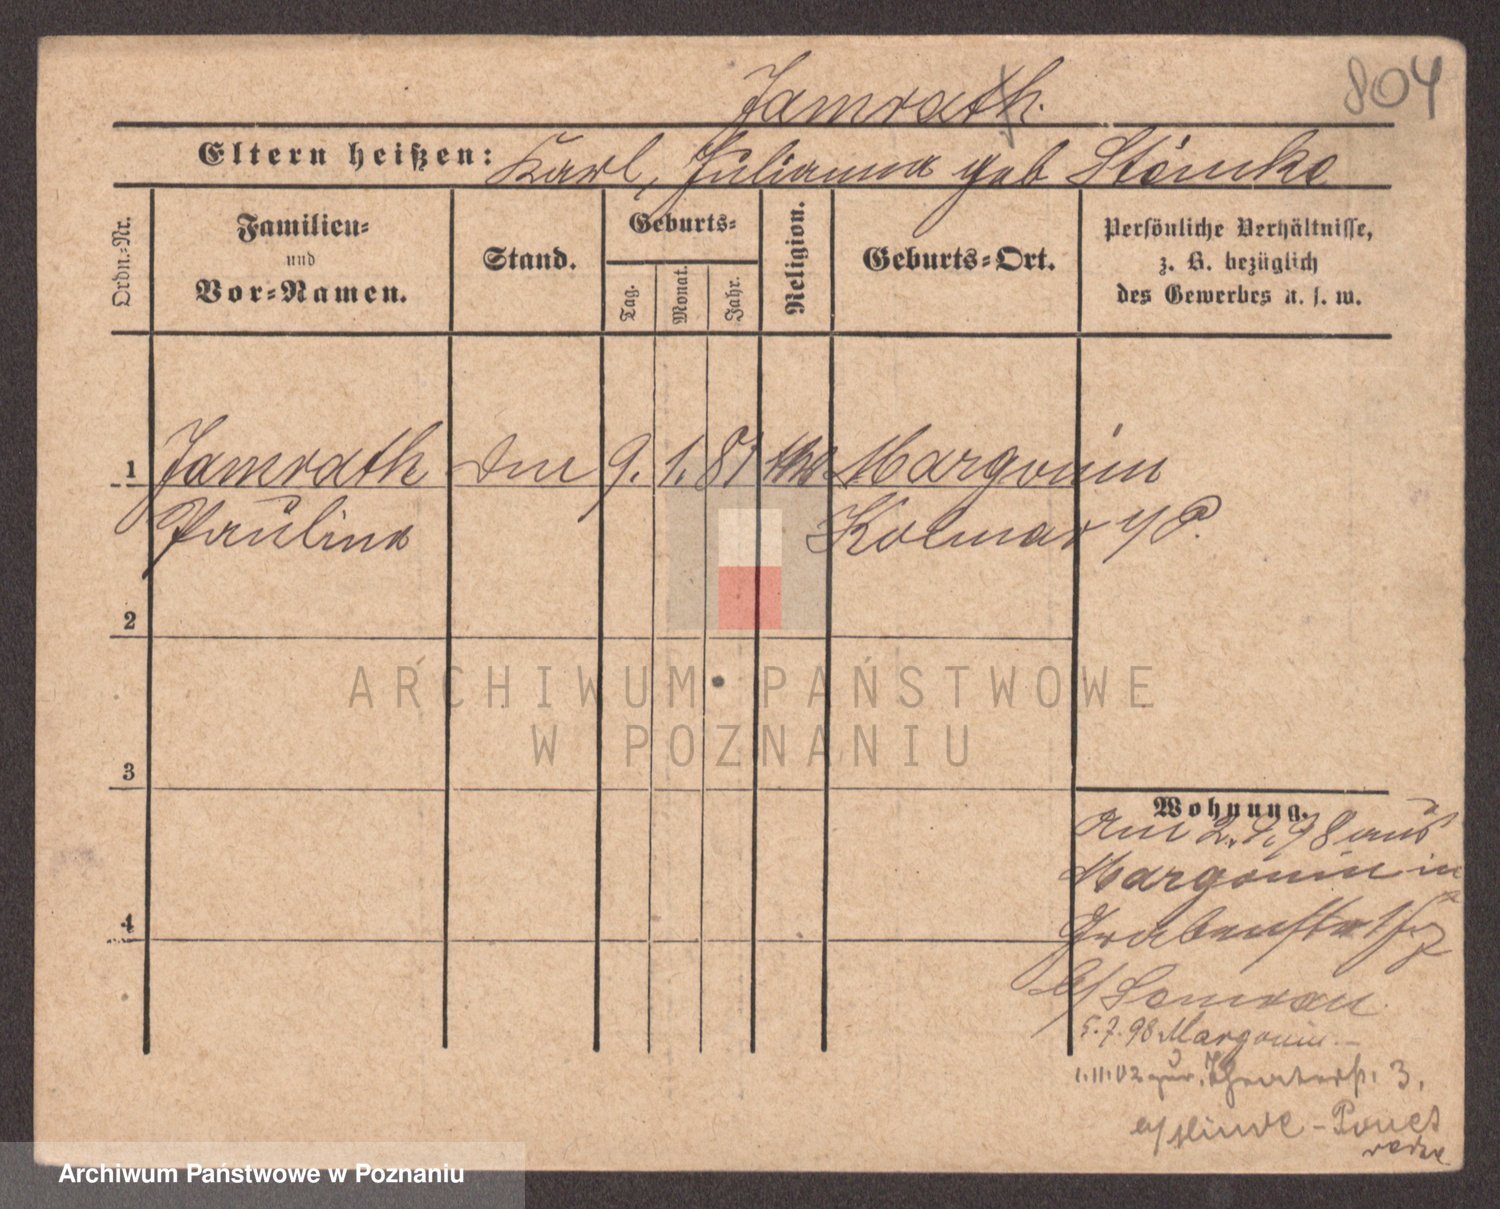 804
Jamrath.
Eltern heißen: Karl, Julianna geb Stömke
Ordn.-Nr.
Familien-
und
Vor-Namen.
Stand.
Geburts-
Tag.
Monat.
Jahr.
Religion.
Geburts-Ort.
Persönliche Verhältnisse,
z. B. bezüglich
des Gewerbes u. s. w.
1 Jamrath 9. 1. 81 Margonin
Paulina Kolmar i/P.
2
3
4
Wohnung.
am 2. 4. 98 aus
Margonin in
Grabenstr
b/
5.7.98 Margonin
1.11.02 zur. 3.
b/
ARCHIWUM PAŃSTWOWE
W POZNANIU
Archiwum Państwowe w Poznaniu